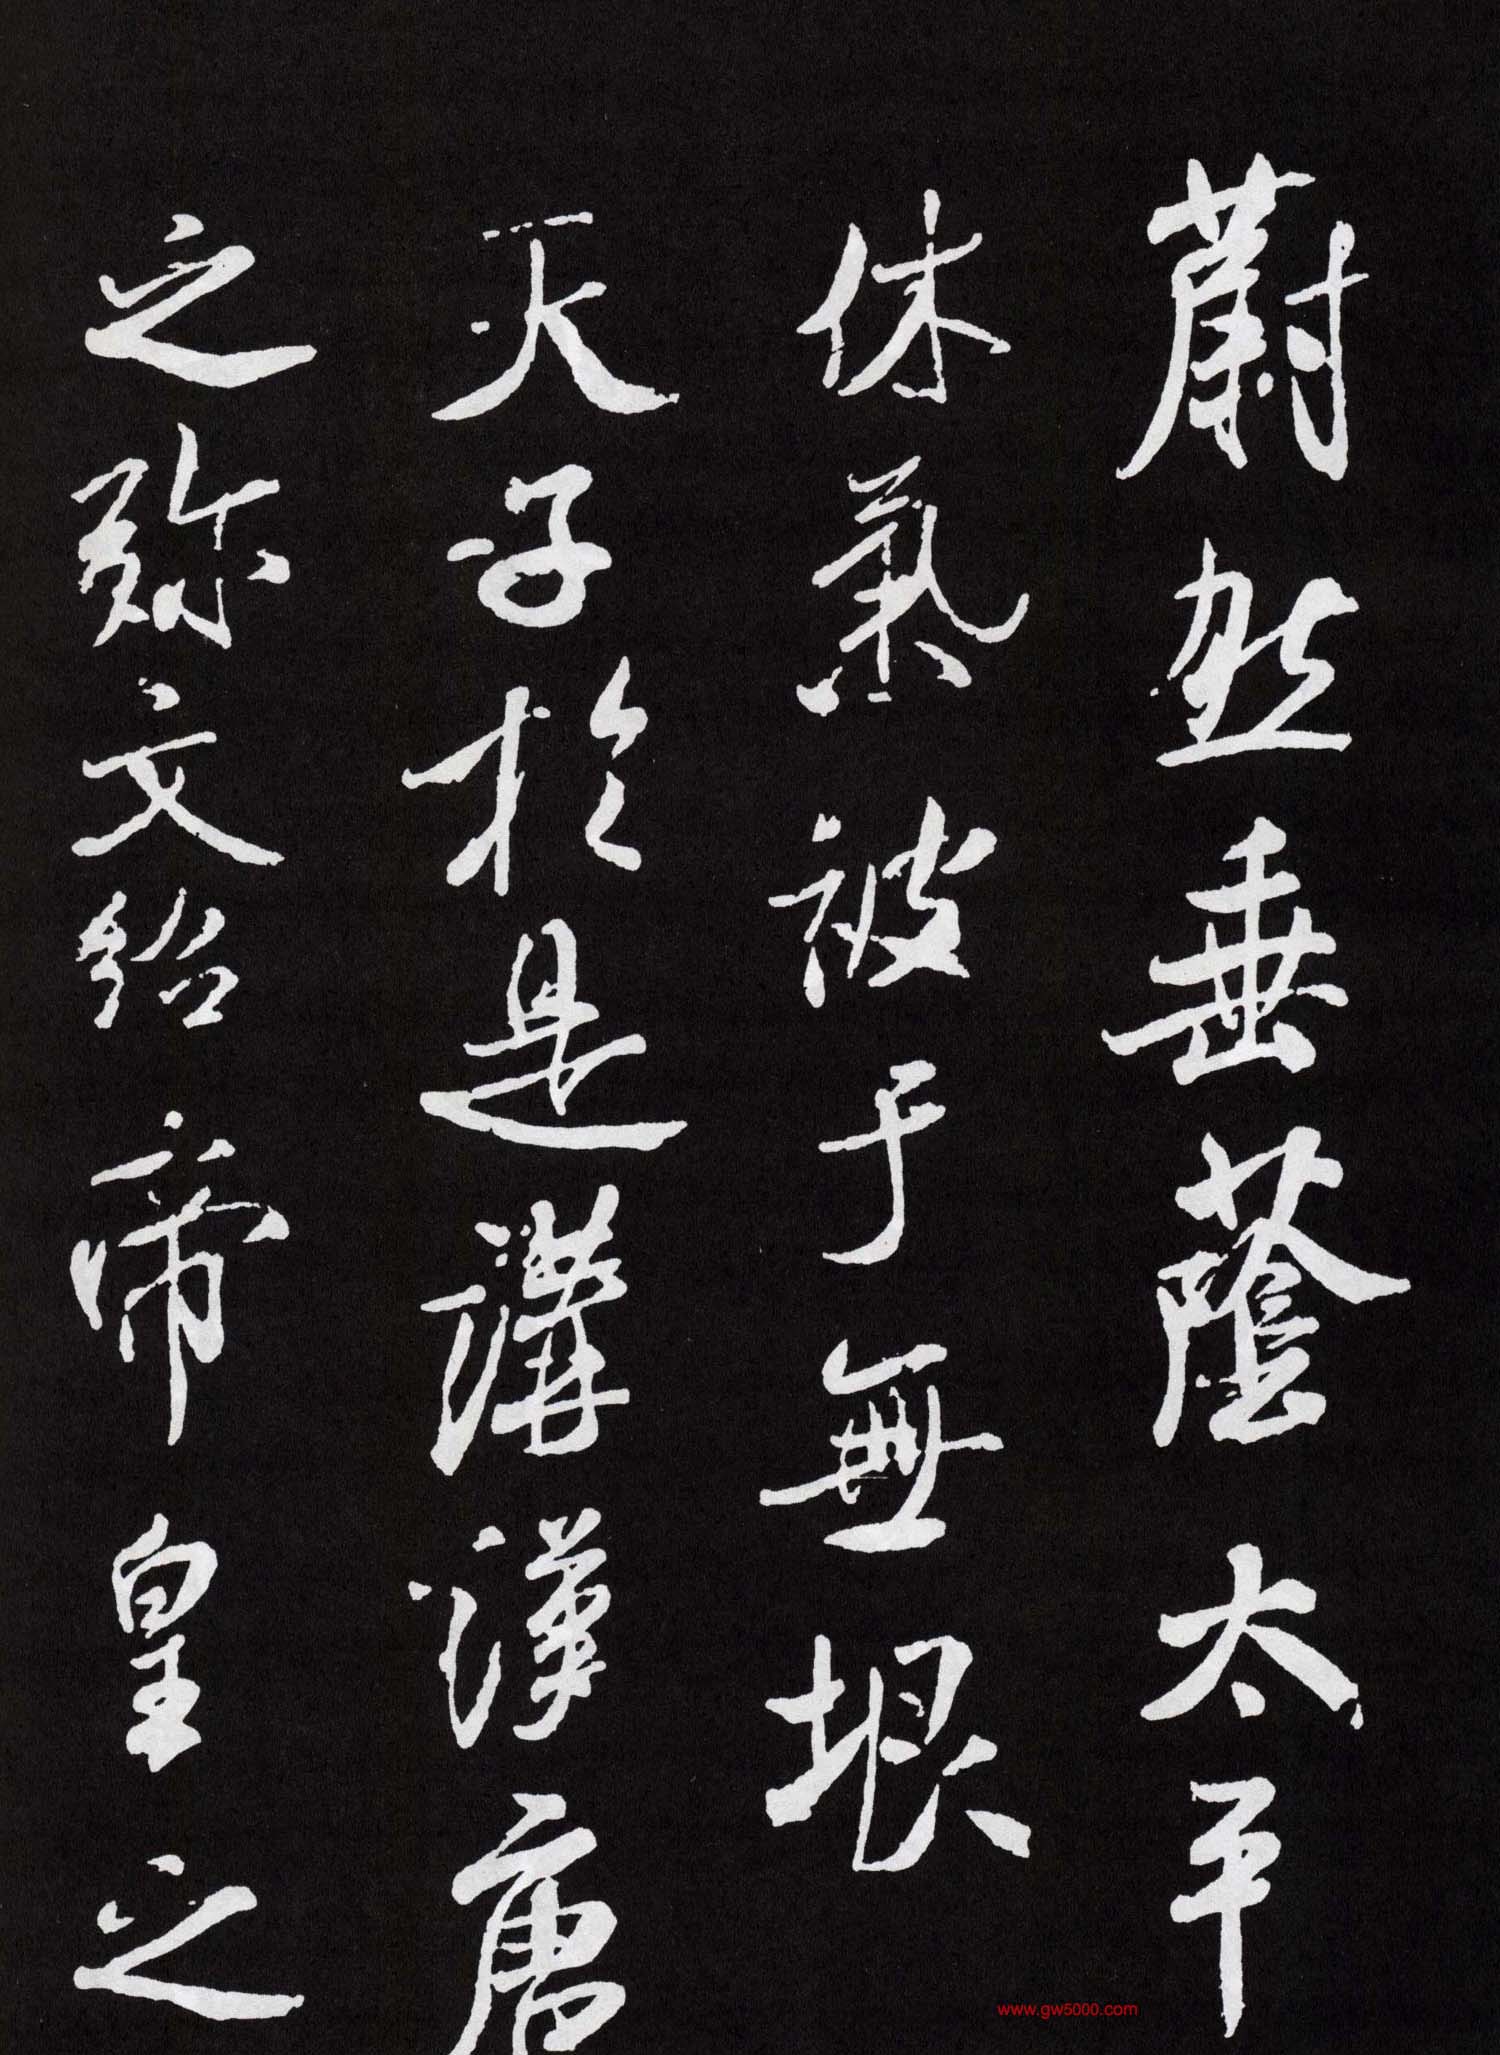 蔚然垂蔭太平
休氣被于無垠
天子於是講漢唐
之弥文紹帝皇之
www.gw5000.com